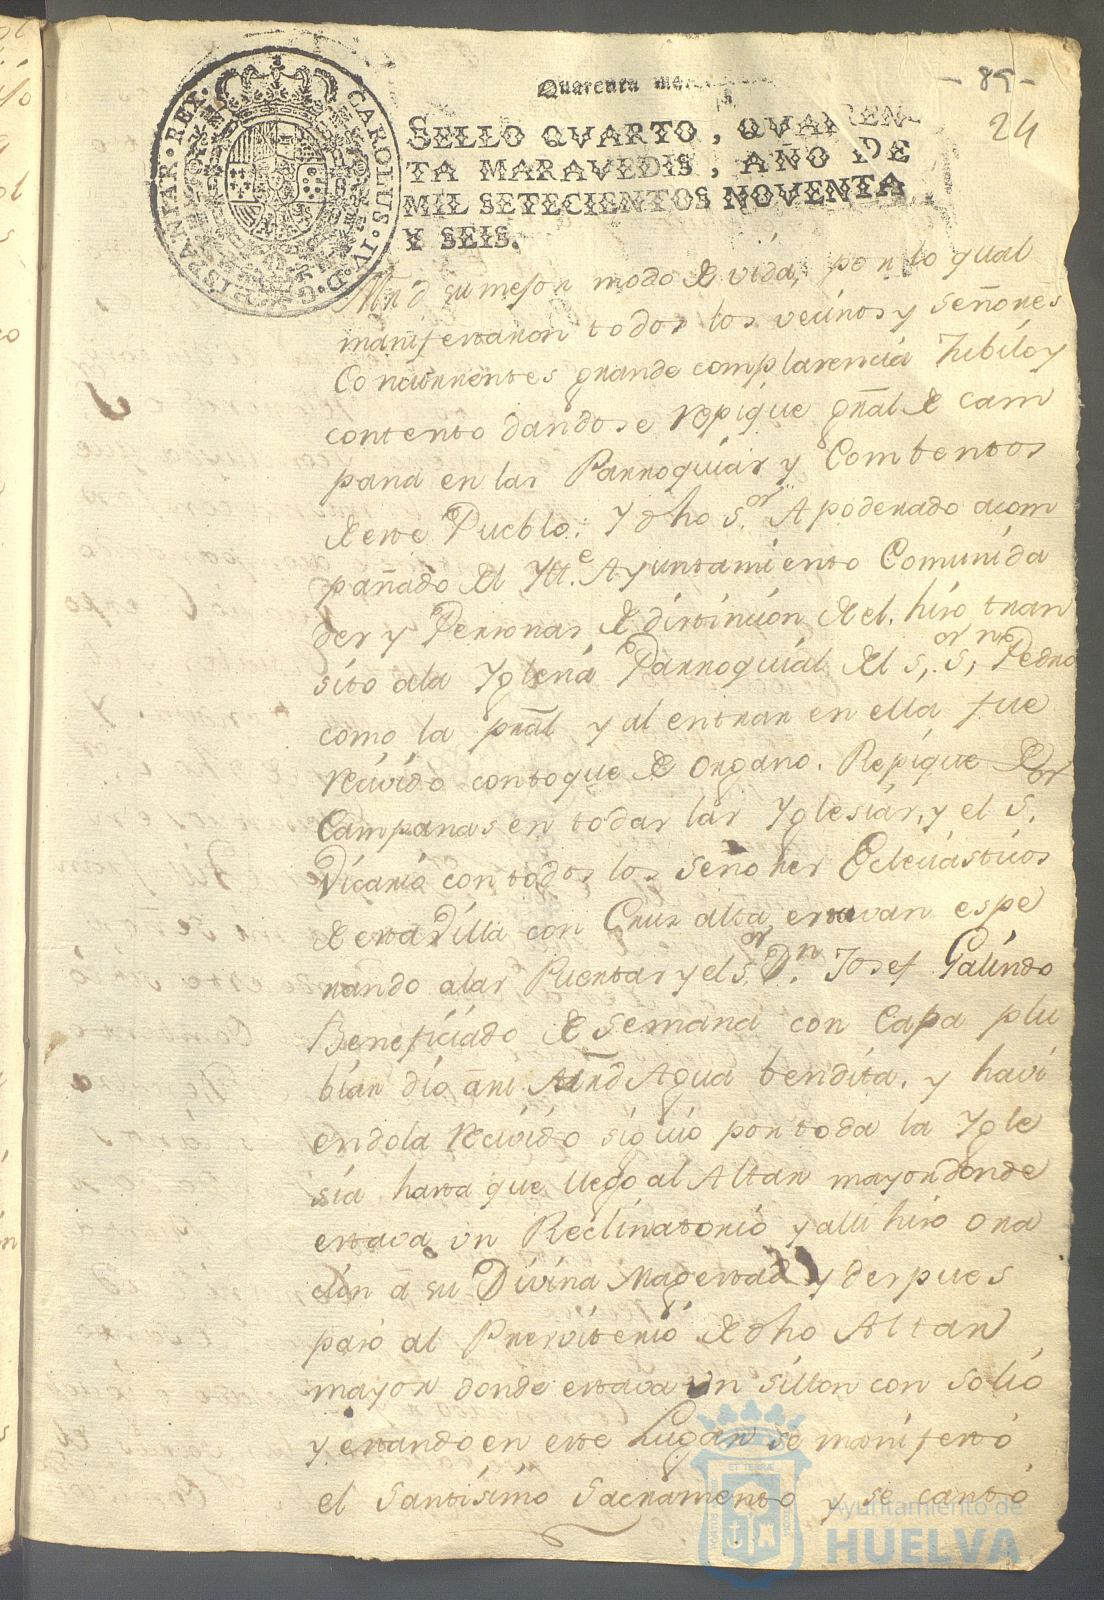 - 85 -
24
Quarenta mar
SELLO QVARTO, QVAREN-
TA MARAVEDIS, AÑO DE
MIL SETECIENTOS NOVENTA
Y SEIS.
CAROLUS · IV · D · G · HISPANIAR · REX ·
su mejor modo de vida, por lo qual
manifestaron todos los vecinos y señores
Concurrentes grande complacencia Jubilo y
contento dandose repique gñal de cam
pana en las Parroquias y Combentos
de este Pueblo: Y dho S.or Apoderado acom
pañado del Ytt.e Ayuntamiento Comunida
des y Personas de distincion de el, hiso tran
sito ala Yglesia Parroquial del S.or S.n Pedro
como la prãl y al entrar en ella fue
recivido con toque de organo. Repique de
Campanas en todas las Yglesias, y el S.or
Vicario con todos los señores Ecleciasticos
de esta Villa con Cruz alta estavan espe
rando alas Puertas y el S.or D.n Josef Galindo
Beneficiado de semana con Capa plu
bial dio a mi Agua bendita, y havi
endola recivido siguio por toda la Ygle
sia hasta que llego al Altar mayor donde
estava un Reclinatorio y alli hiso ora
cion a su Divina Magestad y despues
paso al Presviterio de dho Altar
mayor donde estava un sillon con solio
y estando en este Lugar se manifestó
el Santisimo Sacramento y se cantó
Ayuntamiento de
HUELVA